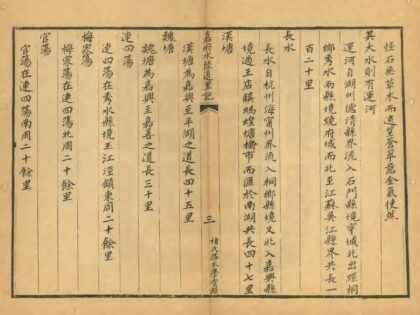 怪石無草木而遠望薈翠意金氣使然
其大水則有運河
運河自湖州德清縣界流入石門縣境穿城北出經桐
鄉秀水兩縣境繞府城而北至江蘇吳江縣界共長一
百二十里
長水
長水自杭州海甯州界流入桐鄉縣境又北入嘉興縣
境過王店鎮馬王塘橋市而匯於南湖共長四十七里
嘉府水陸道里記
三
漢塘
漢塘為嘉興至平湖之道長四十五里
魏塘
魏塘為嘉興至嘉善之道長三十里
連四蕩
連四蕩在秀水縣境王江涇鎮東周二十餘里
梅家蕩
梅家蕩在連四蕩北周二十餘里
官蕩
官蕩在連四蕩南周二十餘里